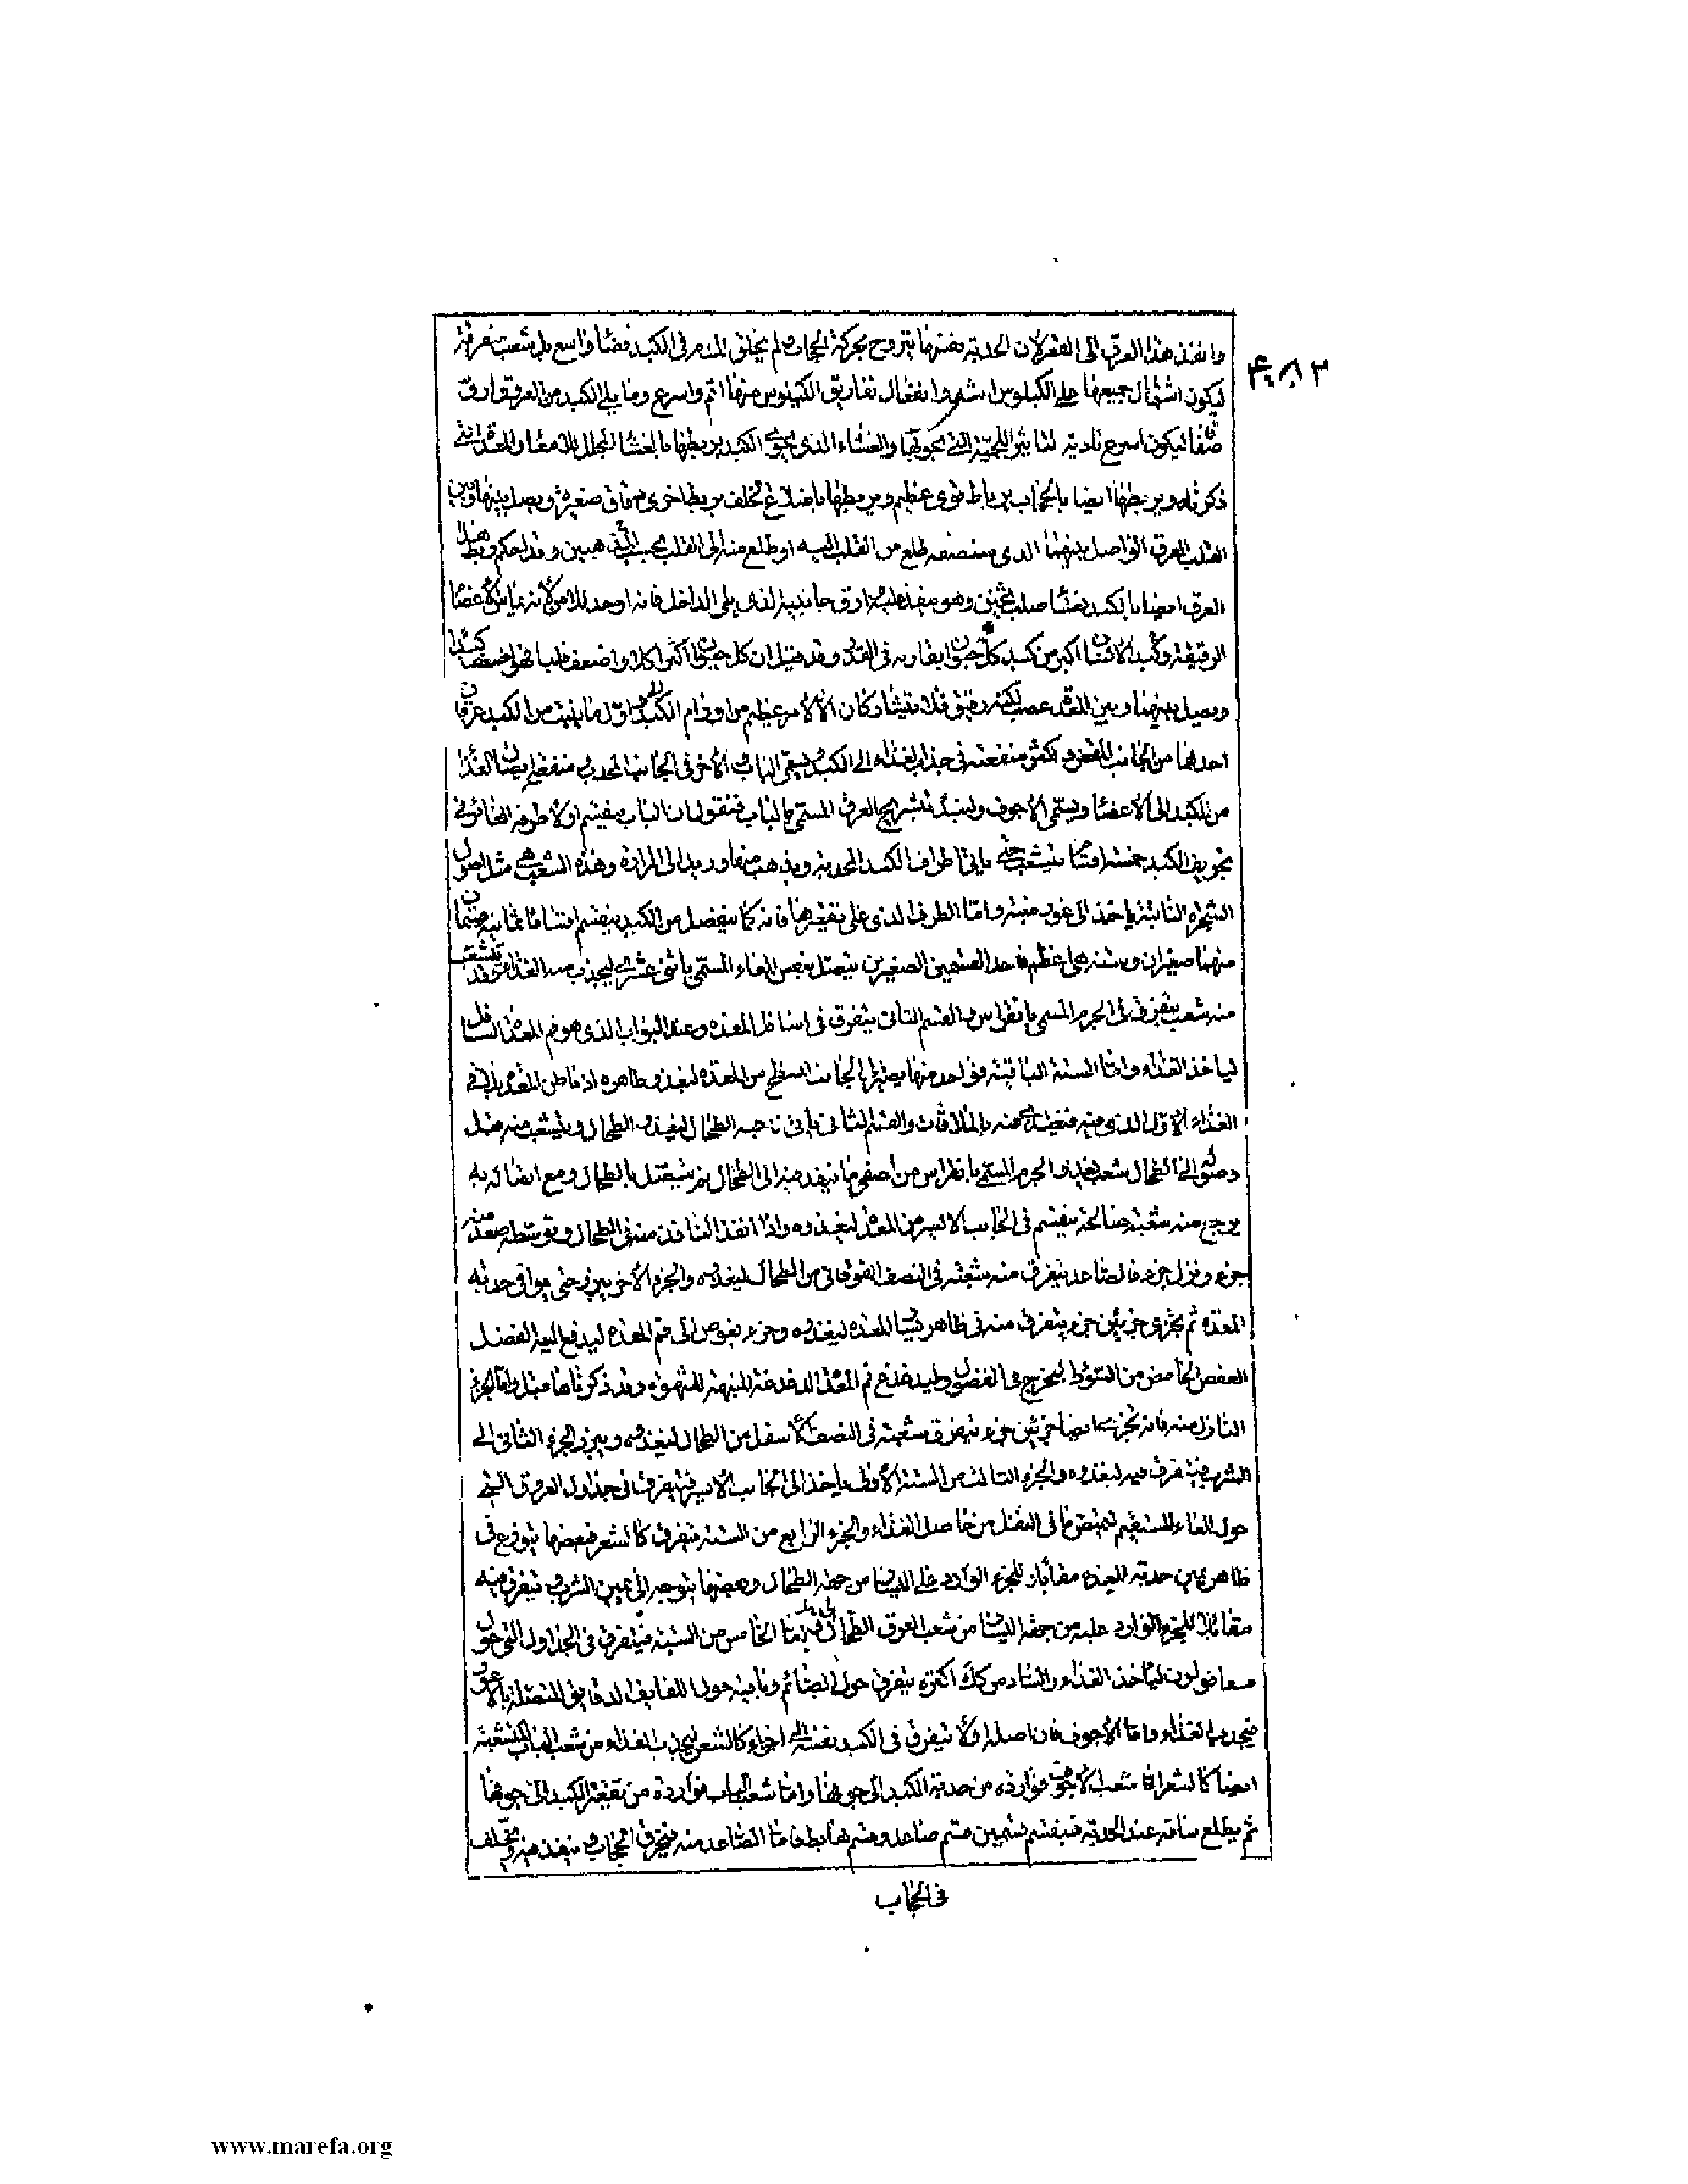 وانفذ هذا العرق الى المقعر لان الحدبة نفسها تتروح بحركة الحجاب ولم يخلق للدم فى الكبد فضاء واسع بل شعب متفرقة
ليكون اشتمال جميعها على الكيلوس اشد وانفعال تفاريق الكيلوس منها اتم واسرع وما يلى الكبد من العروق ارق
صفاقا ليكون اسرع تادية لتاثير اللحمية التى تحويها والغشاء الذى يحوى الكبد يربطها بالغشاء المجلل للامعاء والمعدة الذى
ذكرناه ويربطها ايضا بالحجاب برباط قوى عظيم ويربطها باضلاع الخلف بربط اخرى دقاق صغيرة ويصل بينها وبين
القلب العرق الواصل بينهما الذى ستعرفه طلع من القلب اليه او طلع منه الى القلب بحسب المذهبين وقد احكم ربط هذا
العرق ايضا بالكبد بغشاء صلب ثخين وهو ينفذ عليه وارق جانبيه الذى يلى الداخل فانه اوجد للامن لانه يماس الاعضاء
الرقيقة وكبد الانسان اكبر من كبد كل حيوان يقاربه فى القدر وقد قيل ان كل حيوان اكثر اكلا واضعف قلبا فهو اعظم كبدا
ويصل بينهما وبين المعدة عصب لكنه دقيق فلا يتشاركان الا لامر عظيم من اورام الكبد واول ما ينبت من الكبد عرقان
احدهما من الجانب المقعر واكثر منفعته فى جذب الغذاء الى الكبد ويسمى الباب والاخر فى الجانب المحدب ومنفعته ايصال الغذاء
من الكبد الى الاعضاء ويسمى الاجوف ولنبدأ بتشريح العرق المسمى بالباب فنقول ان الباب ينقسم اولا طرفه الغائر فى
تجويف الكبد خمسة اقسام يتشعب حتى ياتى اطراف الكبد المحدبة ويذهب منها وريد الى المرارة وهذه الشعب هى مثل اصول
الشجرة النابتة ياخذ الى غور منبته واما الطرف الذى يلى تقعيرها فانه كما ينفصل من الكبد ينقسم اقساما ثمانية قسمان
منهما صغيران وستة هى اعظم فاحد القسمين الصغيرين يتصل بنفس المعاء المسمى باثنى عشرى ليجذب منه الغذاء وقد يتشعب
منه شعب يتفرق فى الجرم المسمى بانقراس والقسم الثانى يتفرق فى اسافل المعدة وعند البواب الذى هو فم المعدة السافل
لياخذ الغذاء واما الستة الباقية فواحد منها يصير الى الجانب المسطح من المعدة ليغذو ظاهره اذ باطن المعدة يلاقى
الغذاء الاول الذى فيه فيغتذى منه بالملاقات والقسم الثانى ياتى ناحية الطحال ليغذو الطحال ويتشعب منه قبل
وصوله الى الطحال شعب تغذو الجرم المسمى بانقراس من اصفى ما ينفذ فيه الى الطحال ثم يتصل بالطحال ومع اتصاله به
يرجع منه شعبة صالحة ينقسم فى الجانب الايسر من المعدة ليغذوه واذا انفذ النافذ منه فى الطحال وتوسطه صعد منه
جزء ونزل جزء فالصاعد يتفرق منه شعبة فى النصف الفوقانى من الطحال ليغذوه والجزء الاخر يبرز حتى يوافى حدبة
المعدة ثم يتجزى جزئين جزء يتفرق منه فى ظاهر يسار المعدة ليغذوه وجزء يغوص الى فم المعدة ليدفع اليه الفضل
العفص الحامض من السوداء ليخرج فى الفضول ويدغدغ فم المعدة الدغدغة المنبهة للشهوة وقد ذكرناها قبل واما الجزء
النازل منه فانه يتجزى ايضا جزئين جزء يتفرق شعبته فى النصف الاسفل من الطحال ليغذوه ويبرز الجزء الثانى الى
الثرب فيتفرق فيه ليغذوه والجزء الثالث من الستة الاولى ياخذ الى الجانب الايسر فيتفرق فى جداول العروق التى
حول المعاء المستقيم ليمتص ما فى الثفل من حاصل الغذاء والجزء الرابع من الستة يتفرق كالشعر فبعضها يتوزع فى
ظاهر يمين حدبة المعدة مقابلا للجزء الوارد على اليسار من جهة الطحال وبعضها يتوجه الى يمين الثرب ويتفرق فيه
مقابلا للجزء الوارد عليه من جهة اليسار من شعب العرق الطحالى واما الخامس من الستة فيتفرق فى الجداول التى حول
معا قولون لياخذ الغذاء والسادس كذلك اكثره يتفرق حول الصائم وباقيه حول اللفايف الدقايق المتصلة بالاعور
فيجذب الغذاء واما الاجوف فان اصله اولا يتفرق فى الكبد نفسه الى اجزاء كالشعر ليجذب الغذاء من شعب الباب المنشعبة
ايضا كالشعر اما شعب الاجوف فواردة من حدبة الكبد الى جوفها واما شعب الباب فواردة من تقعير الكبد الى جوفها
ثم يطلع ساقه عند الحدبة فينقسم قسمين قسم صاعد وقسم هابط فاما الصاعد منه فيخرق الحجاب وينفذ فيه ويخلف
فى الحجاب
www.marefa.org